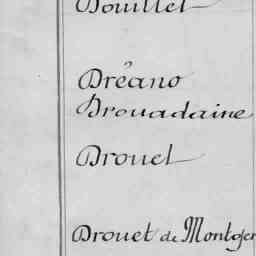 Douillet
Dréano
Drouadaine
Drouet
Drouet de Montger